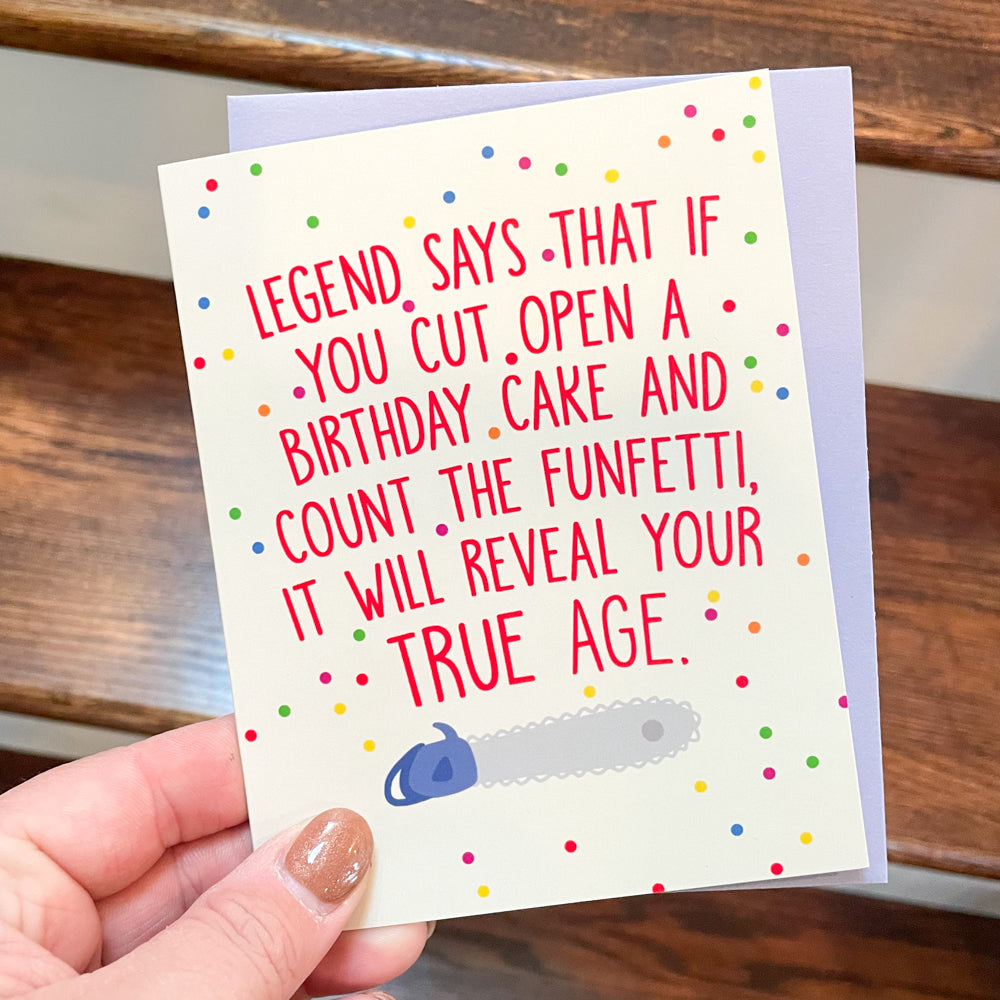 LEGEND SAYS THAT IF
YOU CUT OPEN A
BIRTHDAY CAKE AND
COUNT THE FUNFETTI,
IT WILL REVEAL YOUR
TRUE AGE.